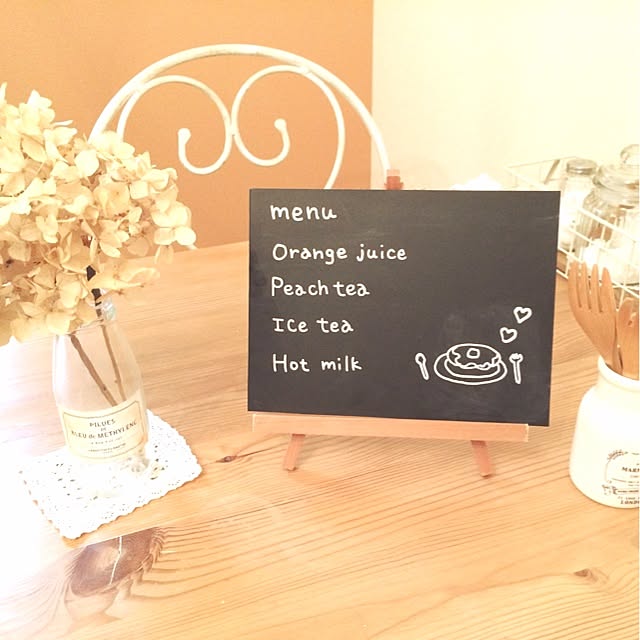 menu
Orange juice
Peach tea
Ice tea
Hot milk
PILULES
DE
BLEU de METHYLENE
LONDON